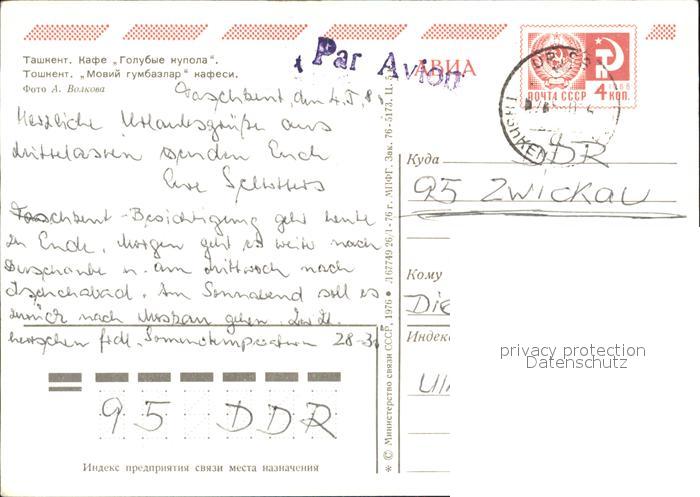 Ташкент. Кафе „Голубые купола".
Тошкент. „Мовий гумбазлар" кафеси.
Фото А. Волкова
Par Avion
АВИА
ПОЧТА СССР 4 КОП.
Taschkent, den 4.5.8
Herzliche Urlaubsgrüße aus
Mittelasien senden Euch
Eure
Taschkent-Besichtigung geht heute
zu Ende. Morgen geht es weiter nach
Duschanbe u. am Mittwoch nach
Aschchabad. Am Sonnabend soll es
zurück nach Moskau gehen. Zur Zt.
herrschen hier Sommertemperaturen 28-30
Куда DDR
95 Zwickau
Кому
Die
Индекс
95 DDR
Индекс предприятия связи места назначения
* © Министерство связи СССР, 1976 • Л 67749 26/I-76 г. МПФГ. Зак. 76-5173.
privacy protection
Datenschutz